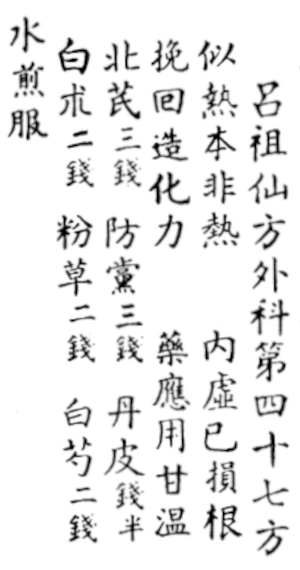 呂祖仙方外科第四十七方
似熱本非熱 內虛已損根
挽回造化力 藥應用甘溫
北芪三錢 防黨三錢 丹皮錢半
白朮二錢 粉草二錢 白芍二錢
水煎服